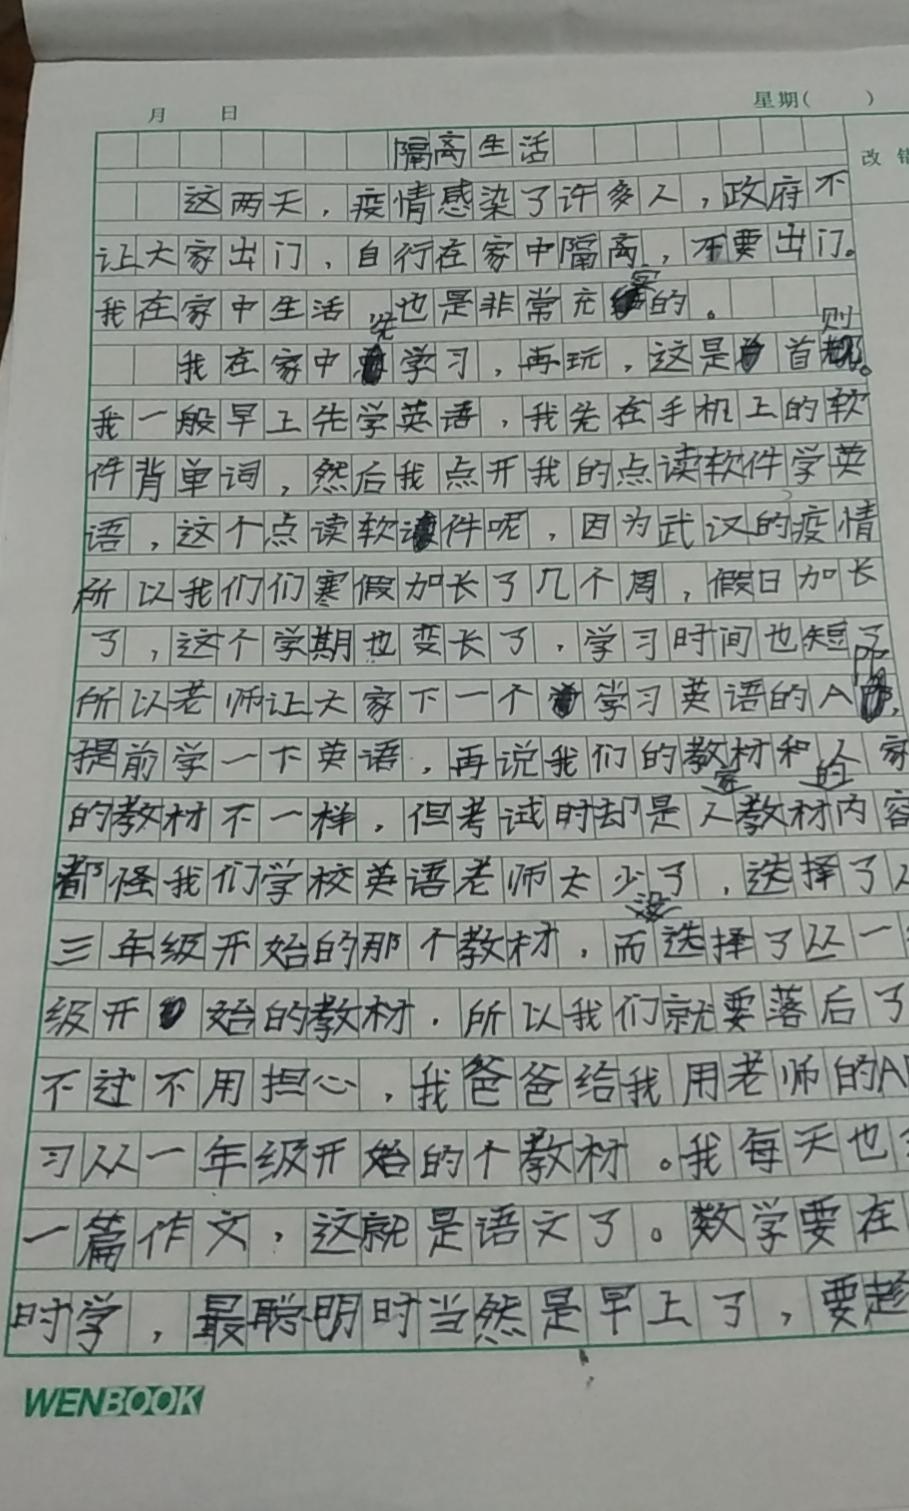 月 日 星期( )
改错
隔离生活
这两天，疫情感染了许多人，政府不
让大家出门，自行在家中隔离，不要出门。
我在家中生活，也是非常充实的。
我在家中先学习，再玩，这是首则。
我一般早上先学英语，我先在手机上的软
件背单词，然后我点开我的点读软件学英
语，这个点读软件呢，因为武汉的疫情
所以我们们寒假加长了几个周，假日加长
了，这个学期也变长了，学习时间也短了
所以老师让大家下一个学习英语的A
提前学一下英语，再说我们的教材和人家
的教材不一样，但考试时却是人家教材的内容
都怪我们学校英语老师太少了，选择了从
三年级开始的那个教材，而没选择了从一
级开始的教材，所以我们就要落后了
不过不用担心，我爸爸给我用老师的A
习从一年级开始的个教材。我每天也
一篇作文，这就是语文了。数学要在
时学，最聪明时当然是早上了，要趁
WENBOOK